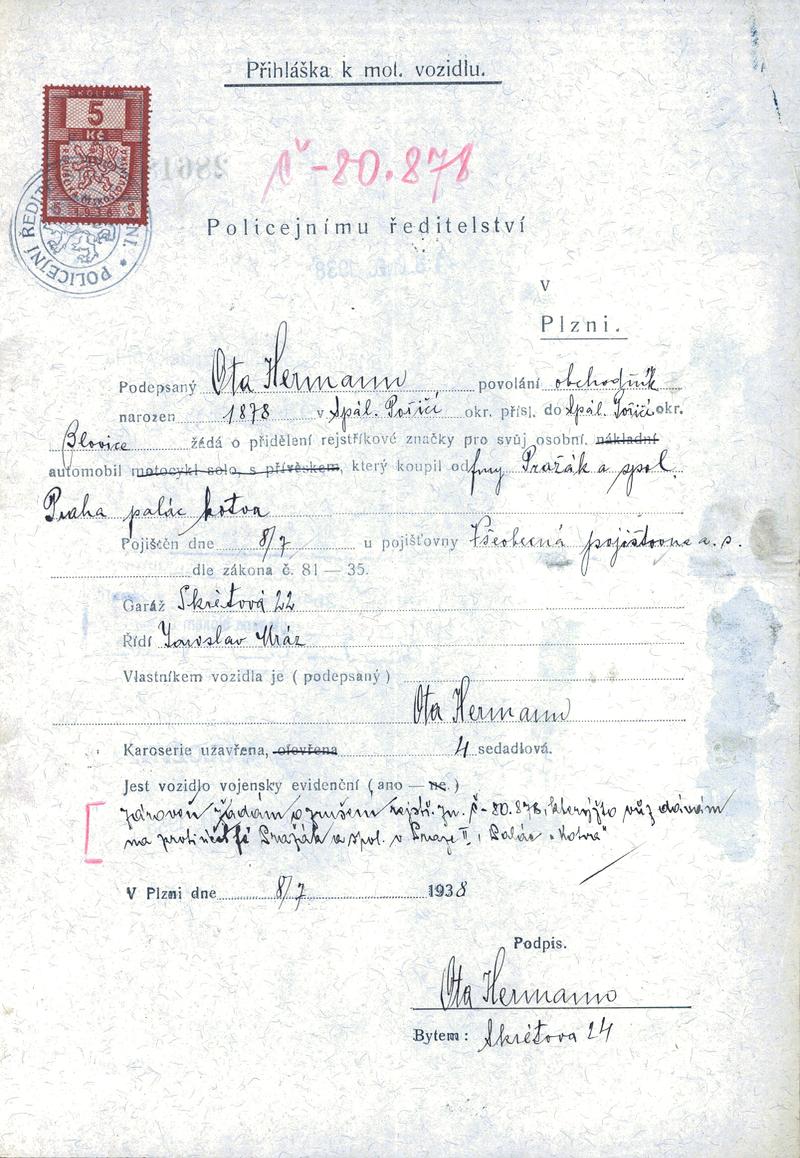 Přihláška k mot. vozidlu.
KOLEK
5
Kč
5 1938 5
č-80.878
POLICEJNÍ ŘEDIT
NI.
Policejnímu ředitelství
v
Plzni.
Podepsaný Ota Hermann povolání obchodník
narozen 1878 v Spál. Poříčí okr. přísl. do Spál. Poříčí okr.
Blovice žádá o přidělení rejstříkové značky pro svůj osobní, nákladní
automobil motocykl solo, s přívěskem, který koupil od fmy Pražák a spol.
Praha palác kotva
Pojištěn dne 8/7 u pojišťovny Všeobecná pojišťovna a. s.
dle zákona č. 81 — 35.
Garáž Skrétová 22
Řídí Jaroslav Mráz
Vlastníkem vozidla je ( podepsaný )
Ota Hermann
Karoserie uzavřena, otevřena 4 sedadlová.
Jest vozidlo vojensky evidenční ( ano — ne. )
zároveň žádám o zrušení rejstř. zn. č-80.878, kterýžto vůz dávám
na protiúčet fě Pražák a spol. v Praze II, Palác „Kotva"
V Plzni dne 8/7 1938
Podpis.
Ota Hermann
Bytem: Skrétova 24